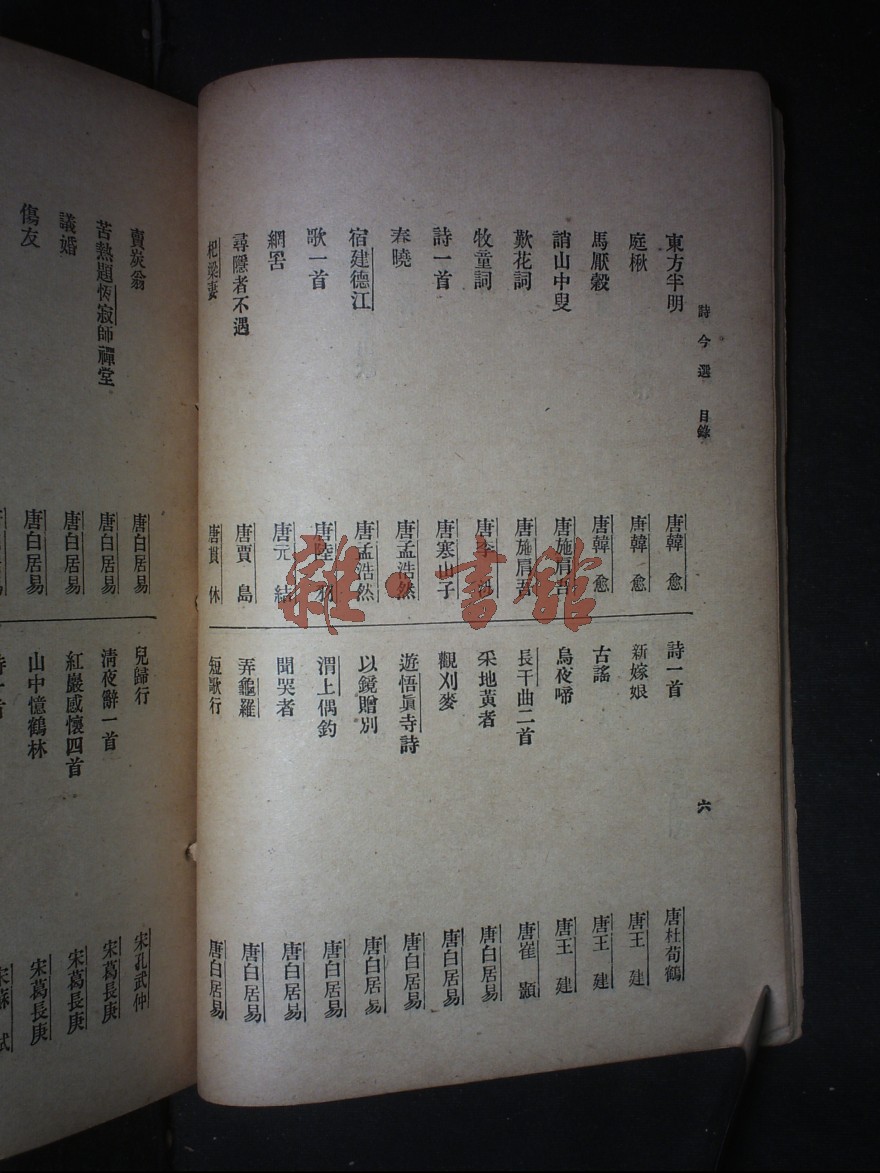 詩今選 目錄
六
東方半明 唐韓愈
庭楸 唐韓愈
馬厭穀 唐韓愈
誚山中叟 唐施肩吾
歎花詞 唐施肩吾
牧童詞 唐李
詩一首 唐寒山子
春曉 唐孟浩然
宿建德江 唐孟浩然
歌一首 唐陸羽
網罟 唐元結
尋隱者不遇 唐賈島
杞梁妻 唐貫休
詩一首 唐杜荀鶴
新嫁娘 唐王建
古謠 唐王建
烏夜啼 唐王建
長干曲二首 唐崔顥
采地黃者 唐白居易
觀刈麥 唐白居易
遊悟眞寺詩 唐白居易
以鏡贈別 唐白居易
渭上偶釣 唐白居易
聞哭者 唐白居易
弄龜羅 唐白居易
短歌行 唐白居易
賣炭翁 唐白居易
苦熱題恆寂師禪堂 唐白居易
議婚 唐白居易
傷友 唐白居易
兒歸行 宋孔武仲
淸夜辭一首 宋葛長庚
紅巖感懷四首 宋葛長庚
山中憶鶴林 宋葛長庚
詩一首 宋蘇軾
雜·書館